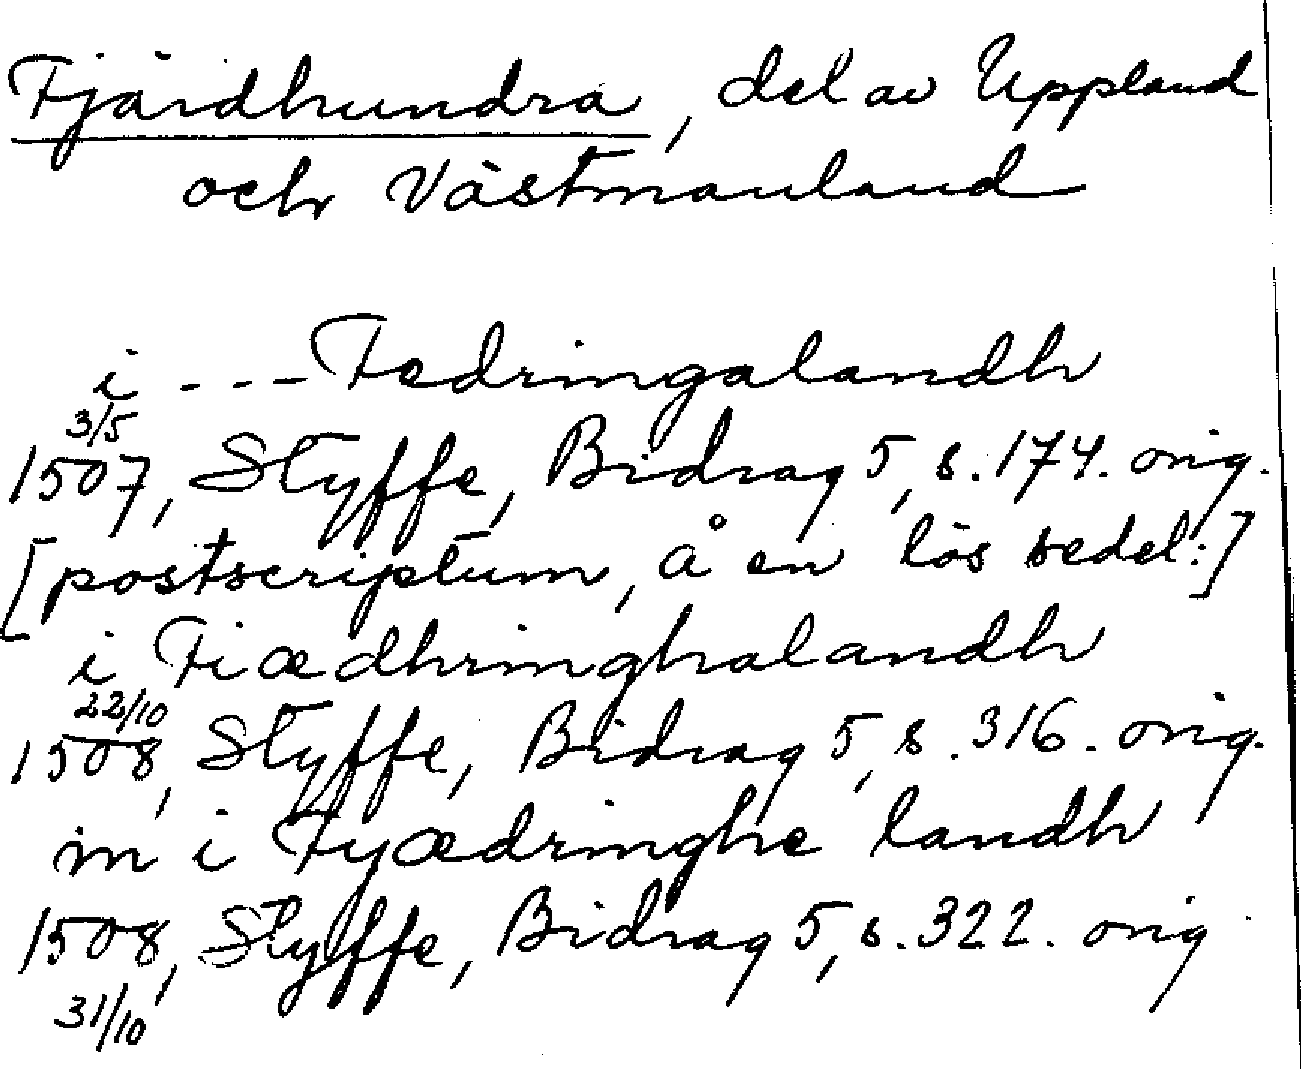 Fjärdhundra, del av Uppland
och Västmanland
i --- Fedringalandh
3/5
1507, Styffe, Bidrag 5, s. 174. orig.
[postscriptum, å en lös sedel:]
i Fiædhringhalandh
22/10
1508, Styffe, Bidrag 5, s. 316. orig.
in i Fyædringhe landh
1508, Styffe, Bidrag 5, s. 322. orig
31/10